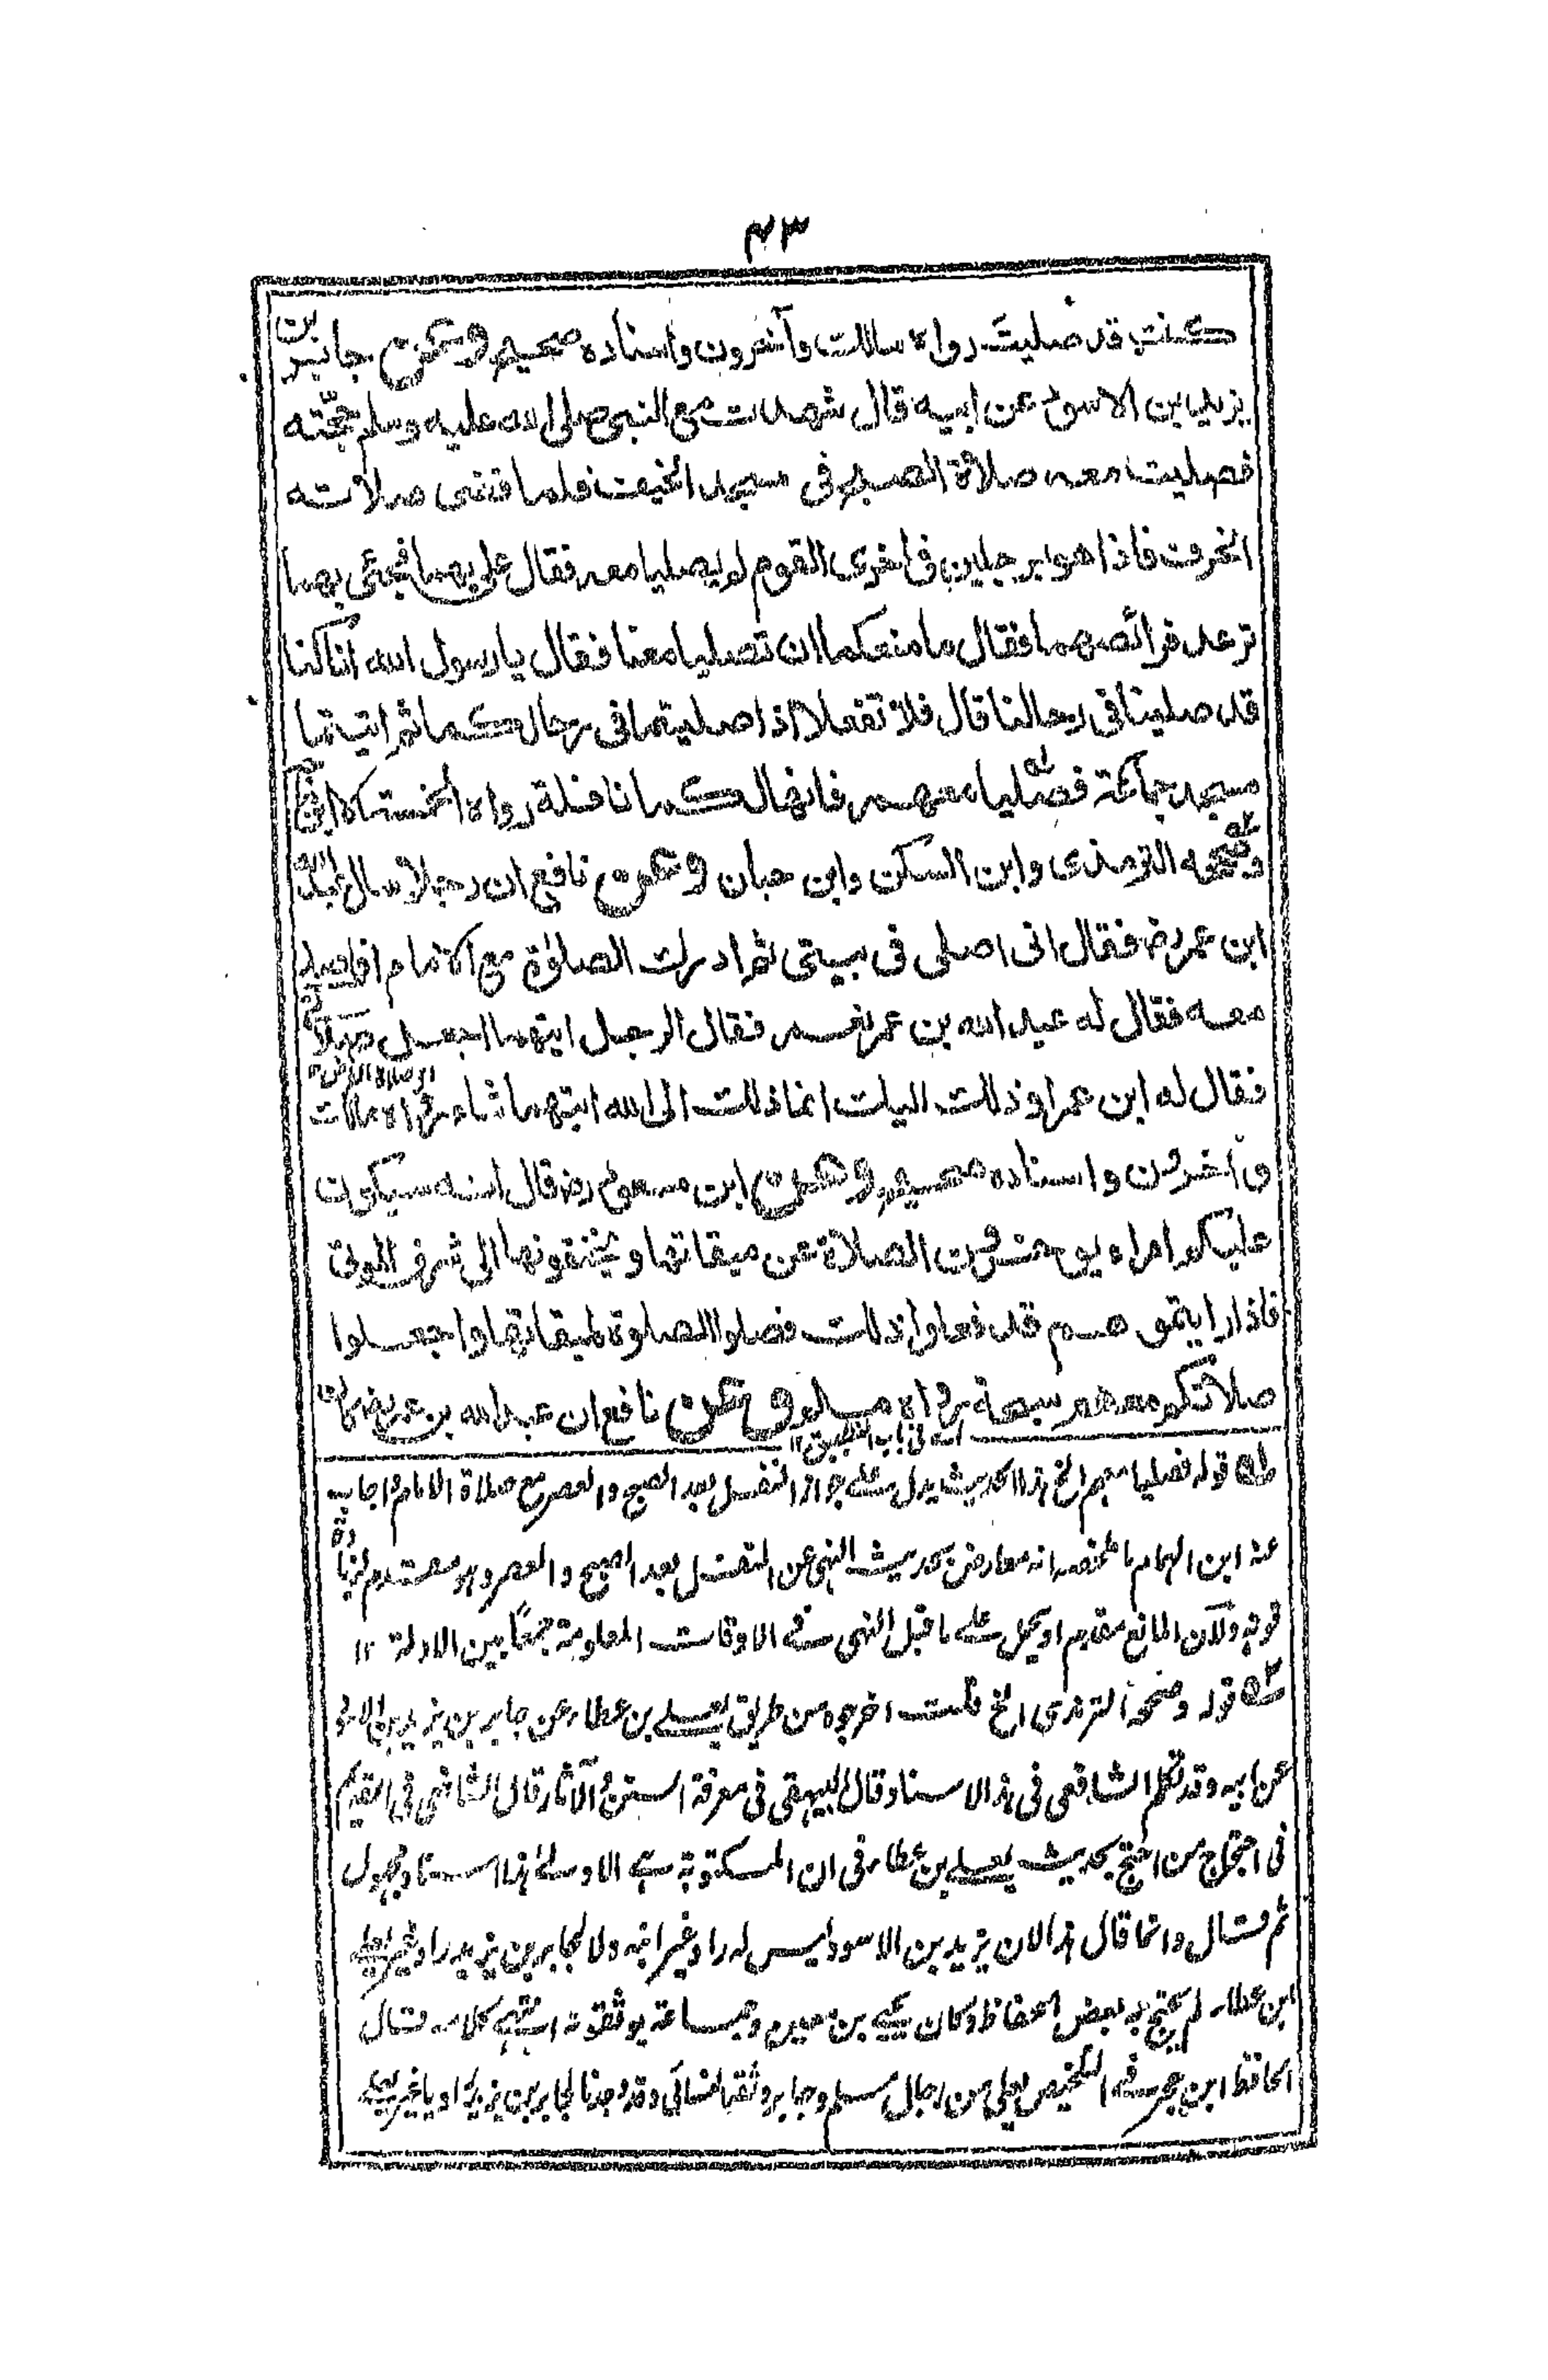 ٤٣
كنت قد صليت رواه مالك وآخرون واسناده صحيح وعن جابر بن
يزيد بن الاسود عن ابيه قال شهدت مع النبي صلى الله عليه وسلم حجّته
فصليت معه صلاة الصبح فى مسجد الخيف فلما قضى صلاته
انحرف فاذا هو برجلين فى اخرى القوم لم يصليا معه فقال علي بهما فجئ بهما
ترعد فرائصهما فقال ما منعكما ان تصليا معنا فقال يا رسول الله انا كنا
قد صلينا فى رحالنا قال فلا تفعلا اذا صليتما فى رحالكما ثم اتيتما
مسجد جماعة فصليا معهم فانها لكما نافلة رواه الخمسة الا ابن
وصححه الترمذى وابن السكن وابن حبان وعن نافع ان رجلا سال عبد الله
ابن عمر رض فقال انى اصلى فى بيتى ثم ادرك الصلوٰة مع الامام افاصلى
معه فقال له عبد الله بن عمر نعم فقال الرجل ايتهما اجعل صلاتى
فقال له ابن عمر او ذلك اليك انما ذلك الى الله ايتهما شاء رواه مالك
وآخرون واسناده صحيح وعن ابن مسعود رض قال انه سيكون
عليكم امراء يوخرون الصلاة عن ميقاتها ويخنقونها الى شرق الموتى
فاذا رايتموهم قد فعلوا ذلك فصلوا الصلوة لميقاتها واجعلوا
صلاتكم معهم سبحة رواه مسلم وعن نافع ان عبد الله بن عمر رض كان
فى باب التطبيق ١٢
له قوله فصليا معهم الخ هذا الحديث يدل على جواز التنفل بعد الصبح والعصر مع صلاة الامام واجاب
عنه ابن الهمام بما ملخصه انه معارض بحديث النهى عن التنفل بعد الصبح والعصر وهو مقدم لزيادة
قوته ولان المانع مقدم او يحمل على ما قبل النهى فى الاوقات المعلومة جمعًا بين الادلة ١٢
٢ه قوله وصححه الترمذى الخ قلت اخرجوه من طريق يعلى بن عطاء عن جابر بن يزيد بن الاسود
عن ابيه وقد تكلم الشافعى فى هذا الاسناد قال البيهقى فى معرفة السنن والآثار قال الشافعى فى القديم
فى احتجاج من احتج بحديث يعلى بن عطاء فى ان المكتوبة هى الاولى هذا اسناد مجهول
ثم قال وانما قال هذا لان يزيد بن الاسود ليس له راو غير ابنه ولا لجابر بن يزيد راو غير يعلى
ابن عطاء لم يحتج به بعض الحفاظ وكان يحيى بن معين وجماعة يوثقونه انتهى كلامه قال
الحافظ ابن حجر فى التلخيص يعلى من رجال مسلم وجابر وثقه النسائى وقد وجدنا لجابر بن يزيد راويا غير يعلى